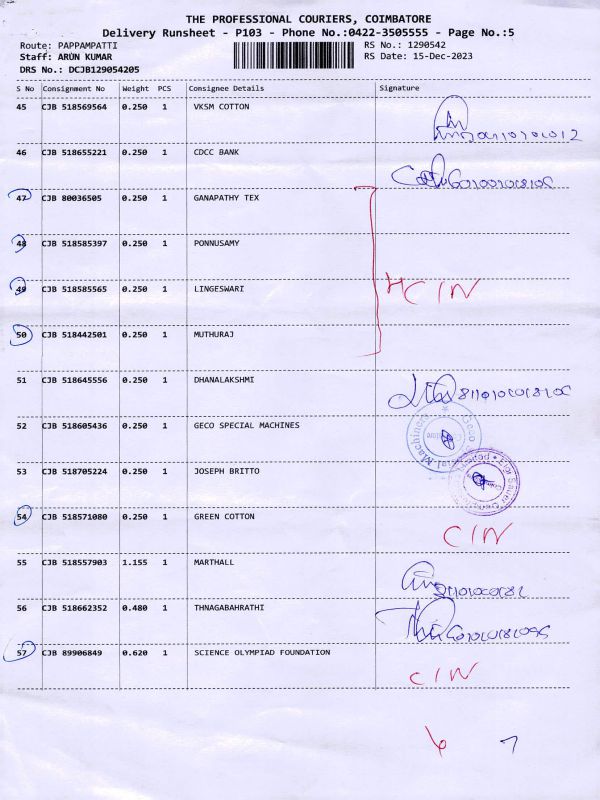 THE PROFESSIONAL COURIERS, COIMBATORE
Delivery Runsheet - P103 - Phone No.:0422-3505555 - Page No.:5
Route: PAPPAMPATTI RS No.: 1290542
Staff: ARUN KUMAR RS Date: 15-Dec-2023
DRS No.: DCJB129054205
S No Consignment No Weight PCS Consignee Details Signature
45 CJB 518569564 0.250 1 VKSM COTTON
46 CJB 518655221 0.250 1 CDCC BANK
47 CJB 80036505 0.250 1 GANAPATHY TEX
48 CJB 518585397 0.250 1 PONNUSAMY
49 CJB 518585565 0.250 1 LINGESWARI
CIN
50 CJB 518442501 0.250 1 MUTHURAJ
51 CJB 518645556 0.250 1 DHANALAKSHMI
52 CJB 518605436 0.250 1 GECO SPECIAL MACHINES
53 CJB 518705224 0.250 1 JOSEPH BRITTO
54 CJB 518571080 0.250 1 GREEN COTTON
CIN
55 CJB 518557903 1.155 1 MARTHALL
56 CJB 518662352 0.480 1 THNAGABAHRATHI
57 CJB 89906849 0.620 1 SCIENCE OLYMPIAD FOUNDATION
CIN
6 7